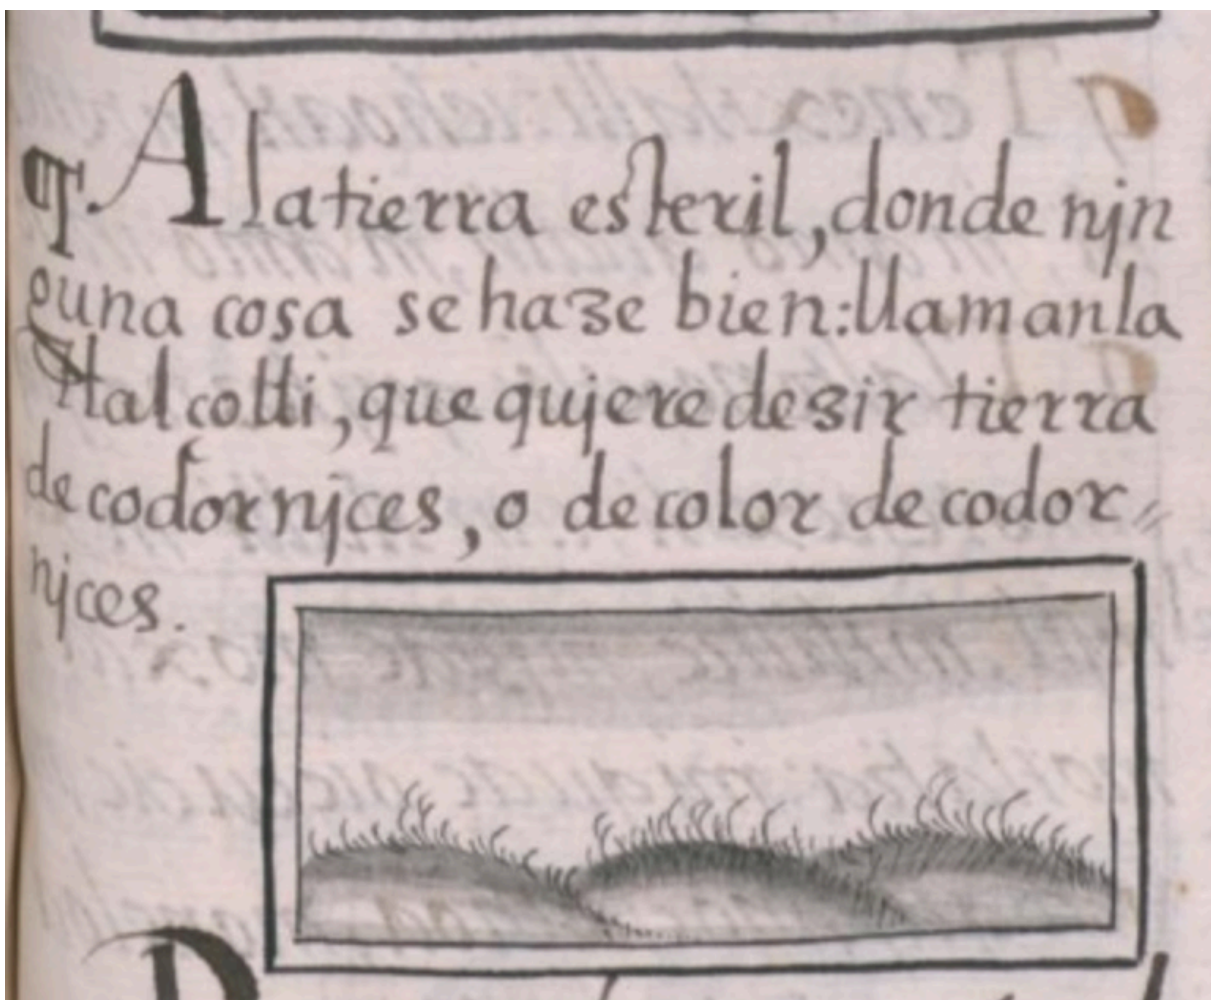 ¶. A la tierra esteril, donde njn
guna cosa se haze bien: llamanla
Tlalçolli, que qujere dezir tierra
de codornjces, o de color de codor//
njces.